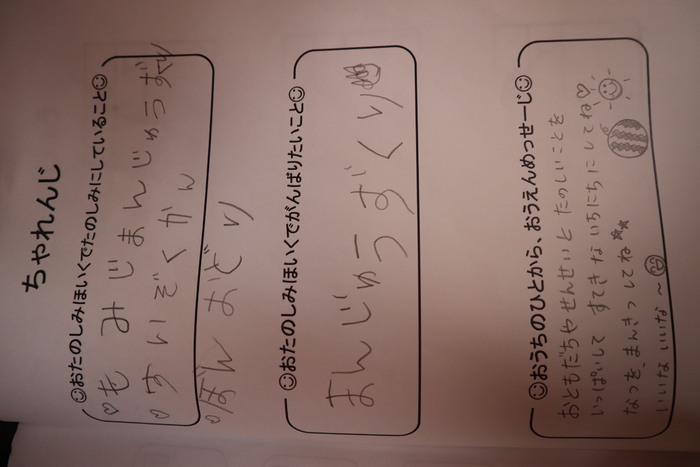 ちゃれんじ
おたのしみほいくでたのしみにしていること
♡もみじまんじゅうずくり
♡すいぞくかん
♡ぼんおどり
おたのしみほいくでがんばりたいこと
まんじゅうずくり
おうちのひとから、おうえんめっせーじ
おともだちやせんせいとたのしいことを
いっぱいしてすてきないちにちにしてね♡
なつを、まんきつしてね★★
いいないいな～